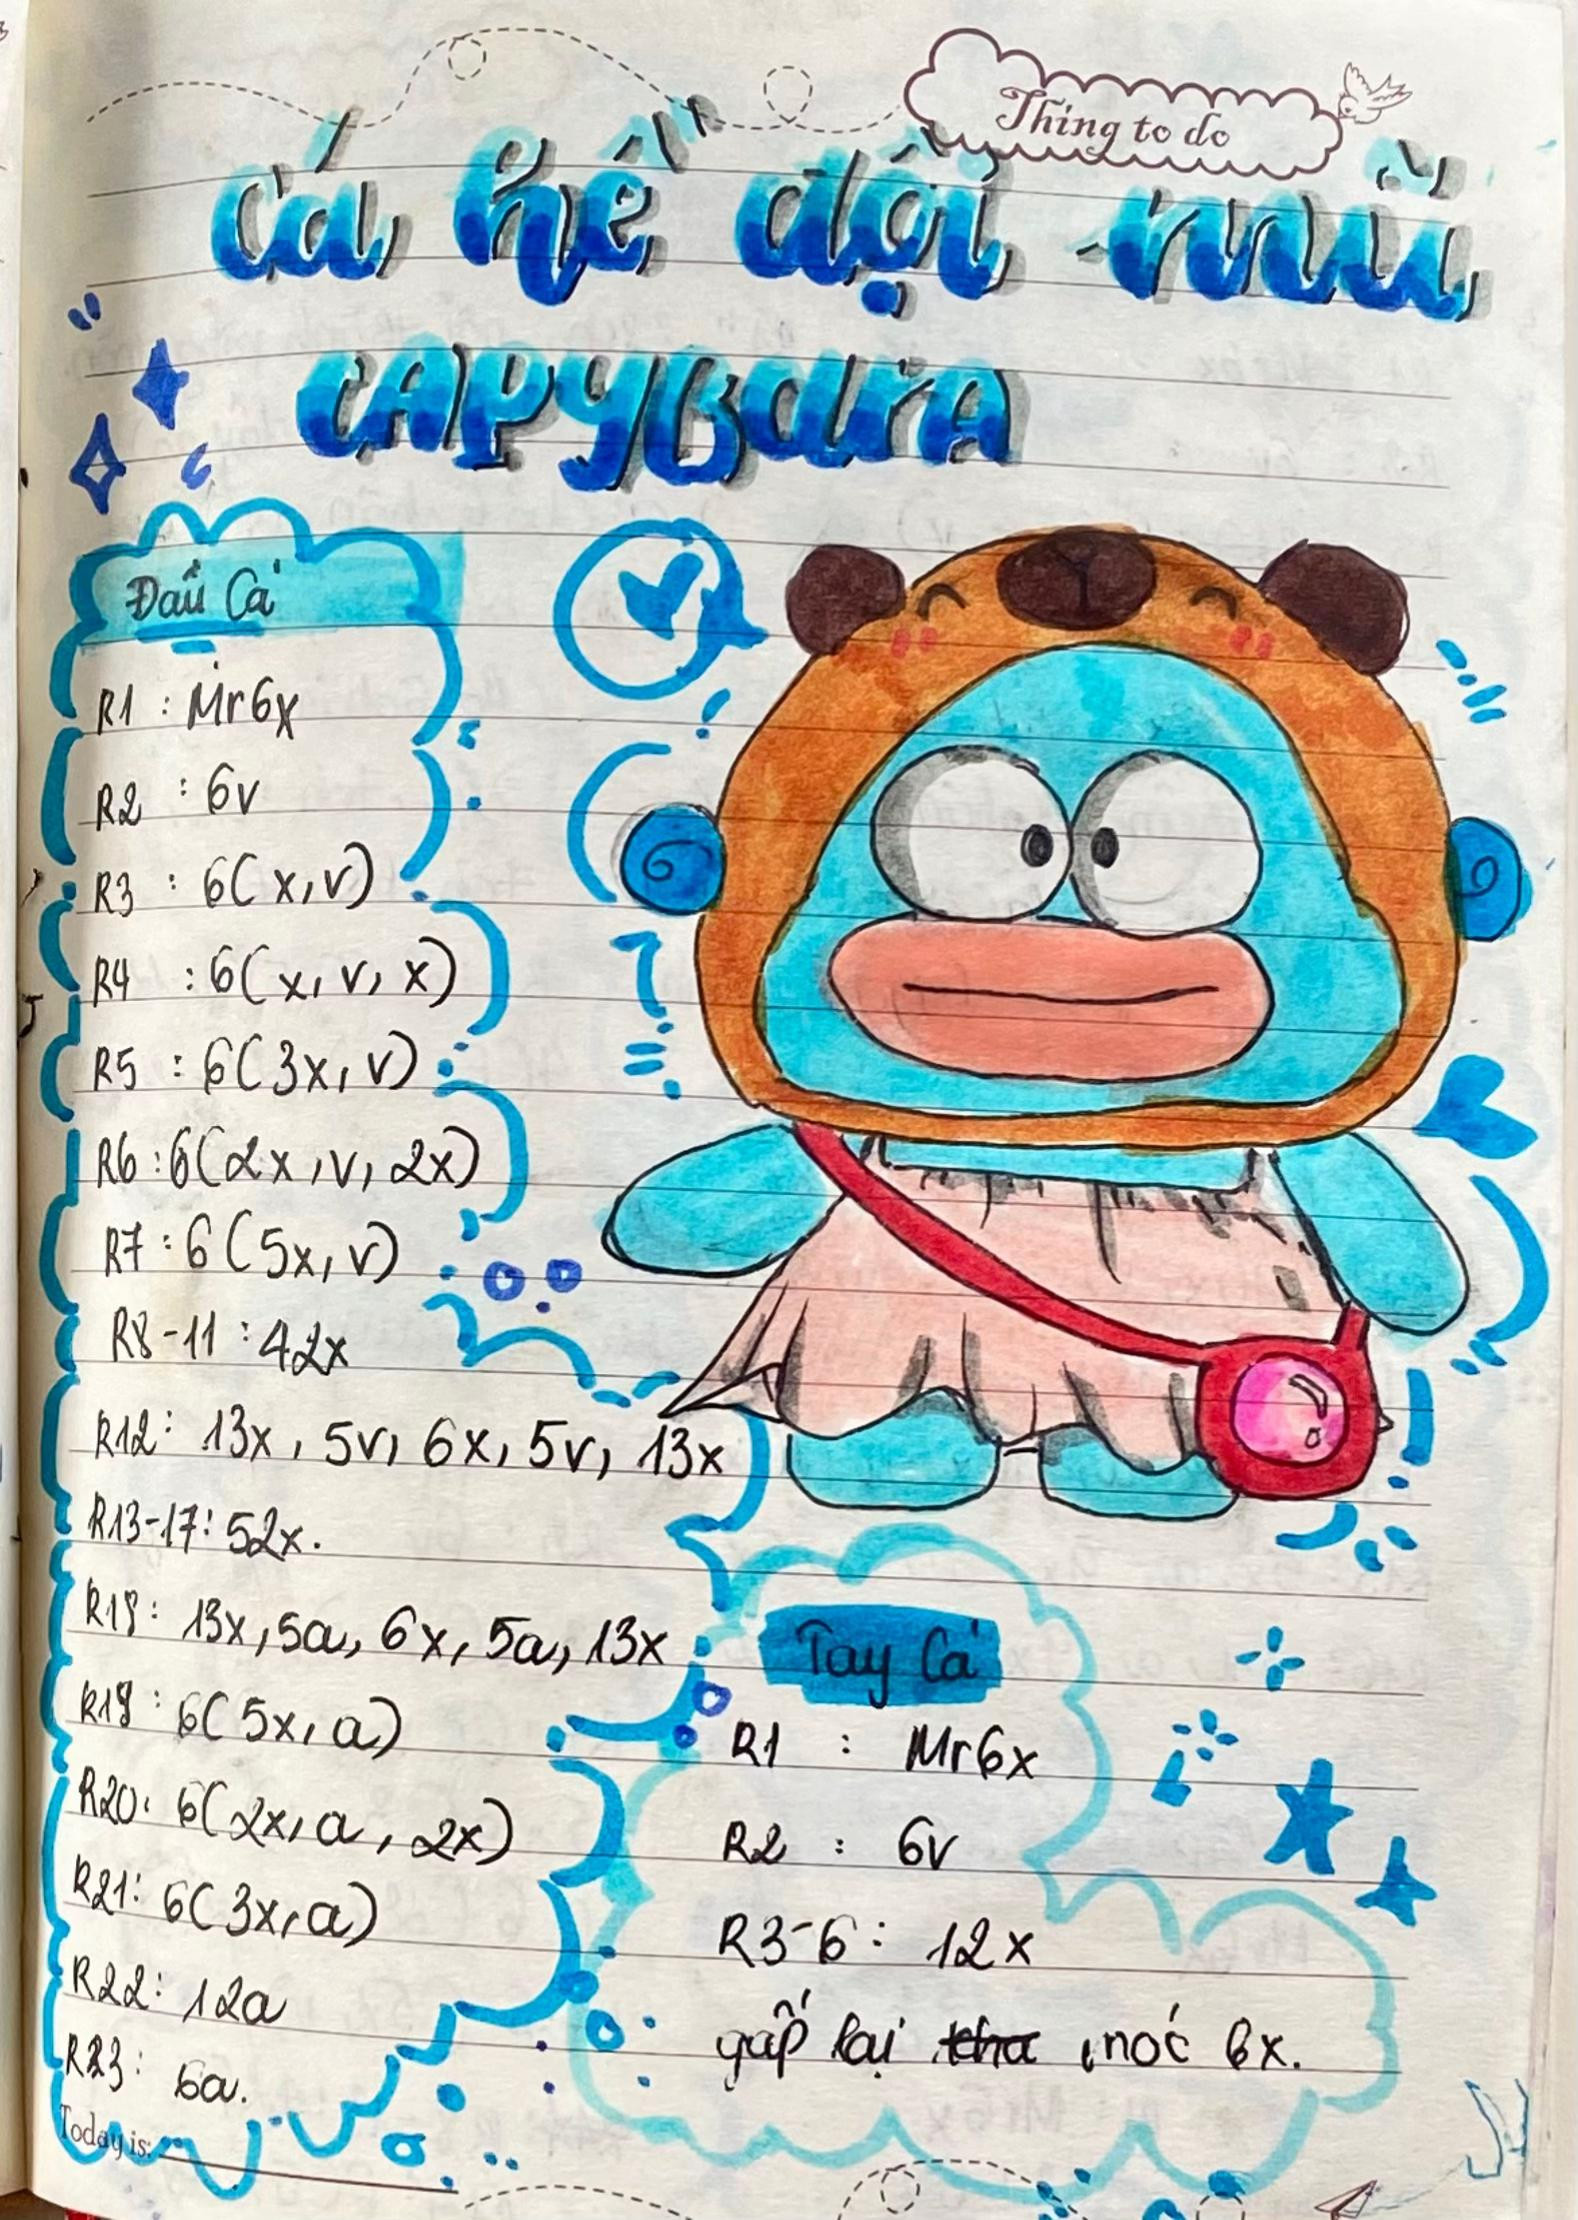 Thing to do
Cá hề đội mũ
CAPYBARA
Đầu Cá
R1 : Mr6x
R2 : 6v
R3 : 6(x,v)
R4 : 6(x, v, x)
R5 : 6(3x, v)
R6 : 6(2x, v, 2x)
R7 : 6(5x, v)
R8-11 : 42x
R12: 13x, 5v, 6x, 5v, 13x
R13-17: 52x.
R18: 13x, 5a, 6x, 5a, 13x
R19: 6(5x, a)
R20: 6(2x, a, 2x)
R21: 6(3x, a)
R22: 12a
R23: 6a.
Today is:
Tay Cá
R1 : Mr6x
R2 : 6v
R3-6 : 12x
gấp lại móc 6x.